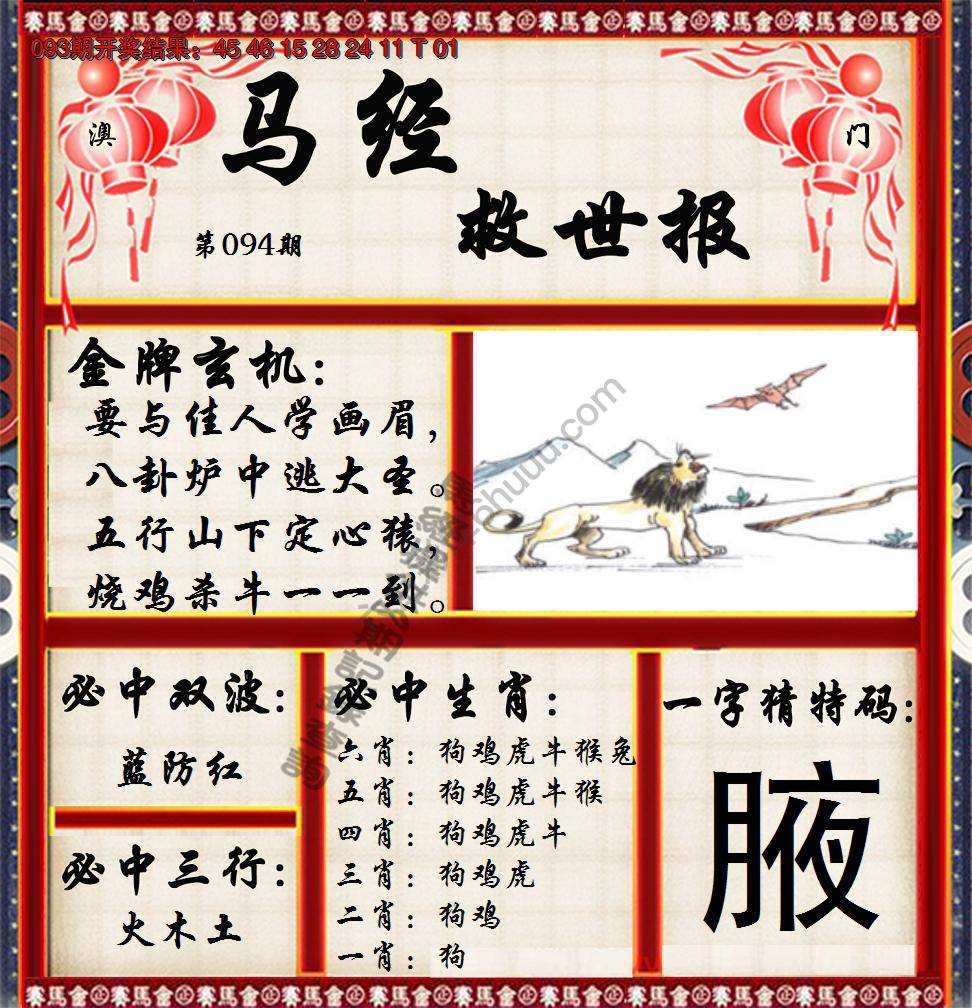 093期开奖结果：45 46 15 28 24 11 T 01
澳 门
马经
救世报
第094期
金牌玄机：
要与佳人学画眉，
八卦炉中逃大圣。
五行山下定心猿，
烧鸡杀牛一一到。
必中双波：
蓝防红
必中三行：
火木土
必中生肖：
六肖：狗鸡虎牛猴兔
五肖：狗鸡虎牛猴
四肖：狗鸡虎牛
三肖：狗鸡虎
二肖：狗鸡
一肖：狗
一字猜特码：
腋